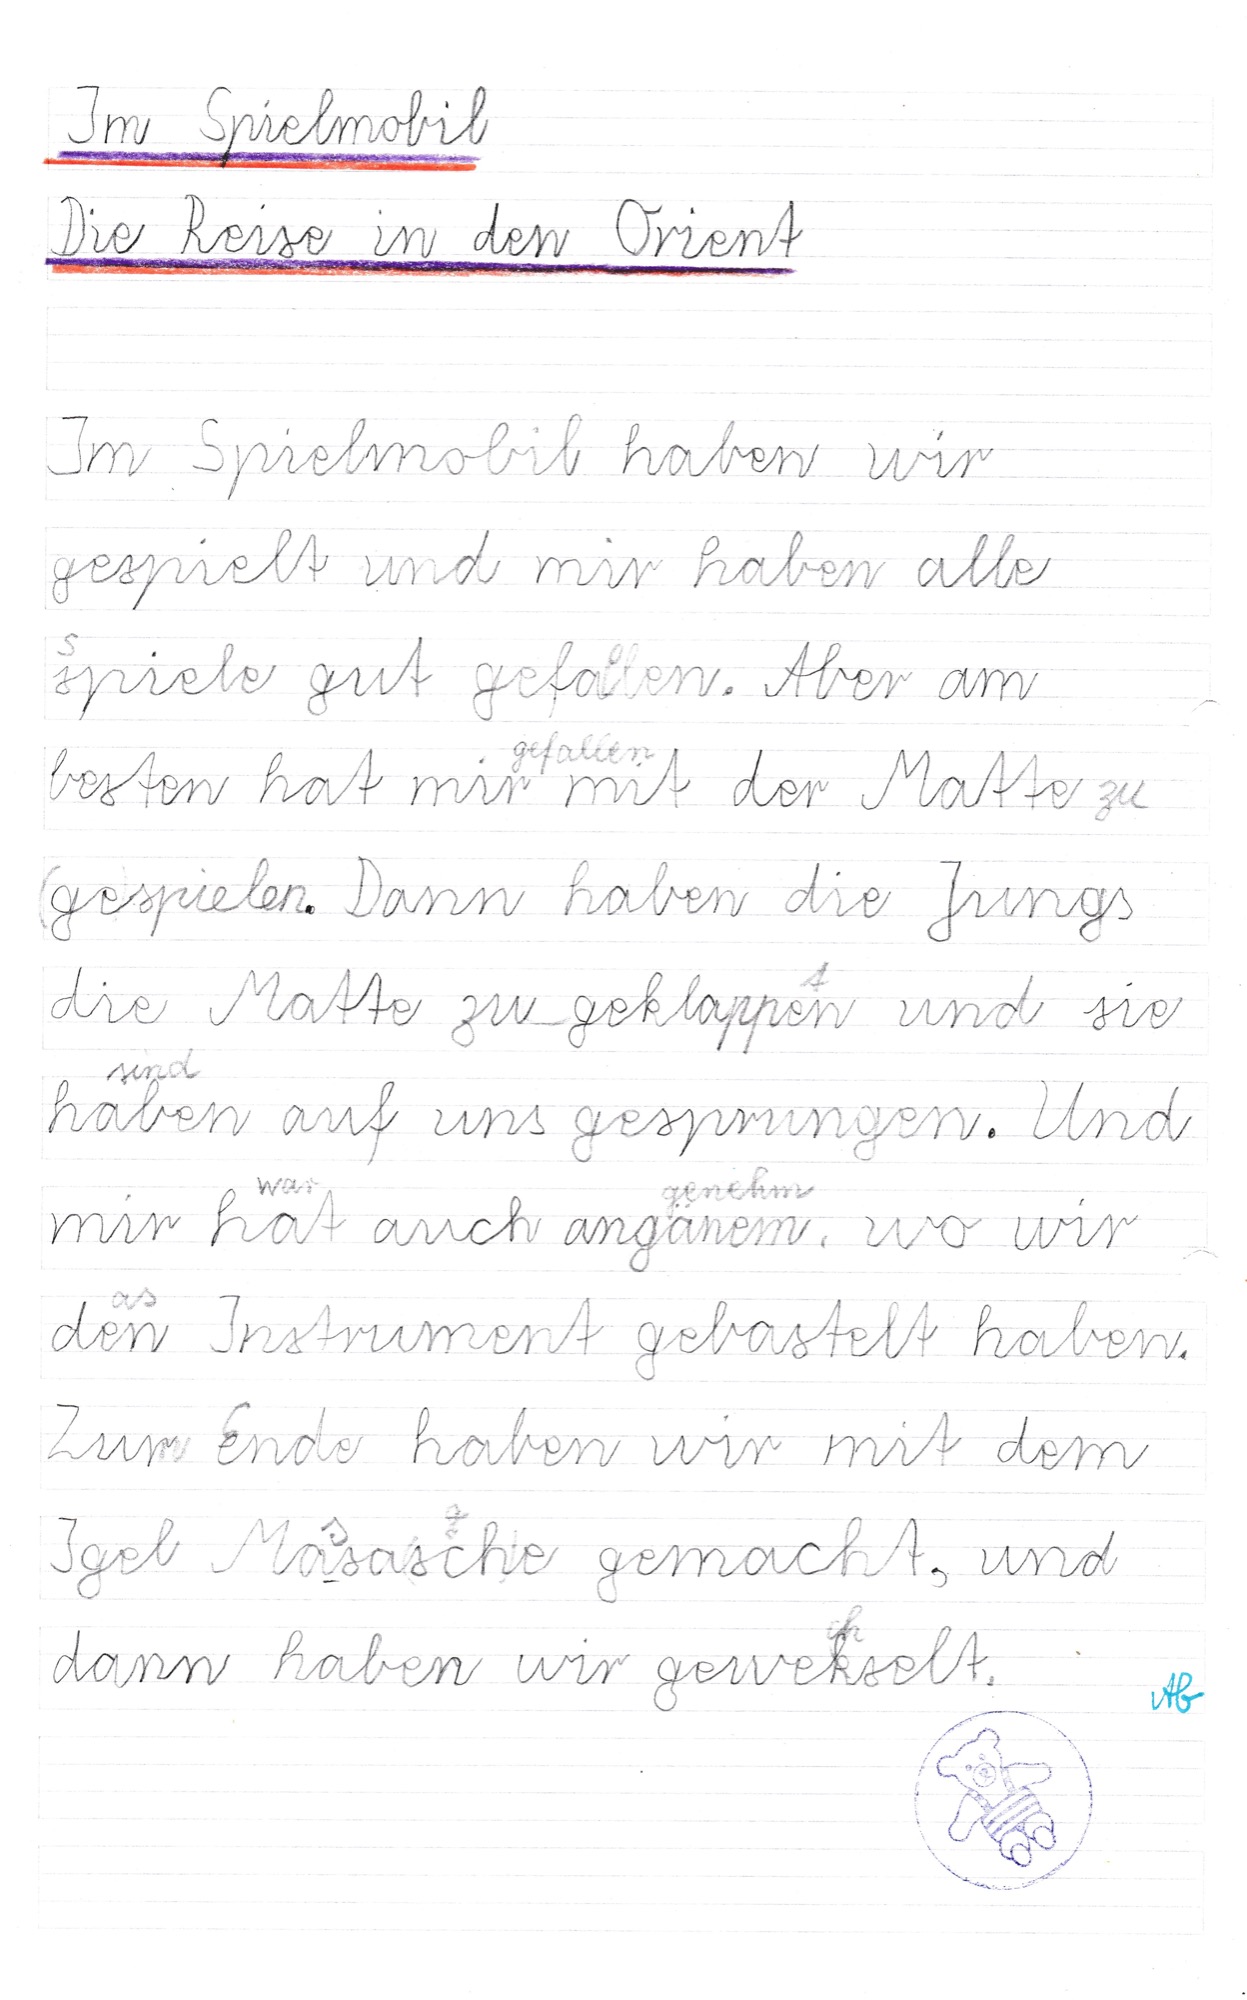 Im Spielmobil
Die Reise in den Orient
Im Spielmobil haben wir
gespielt und mir haben alle
S
spiele gut gefallen. Aber am
gefallen
besten hat mir mit der Matte zu
(gespielen. Dann haben die Jungs
die Matte zu geklappen und sie
t
sind
haben auf uns gesprungen. Und
war genehm
mir hat auch angänem. wo wir
as
den Instrument gebastelt haben.
Zum Ende haben wir mit dem
Igel Masasche gemacht, und
ch
dann haben wir gewekselt.
Ab